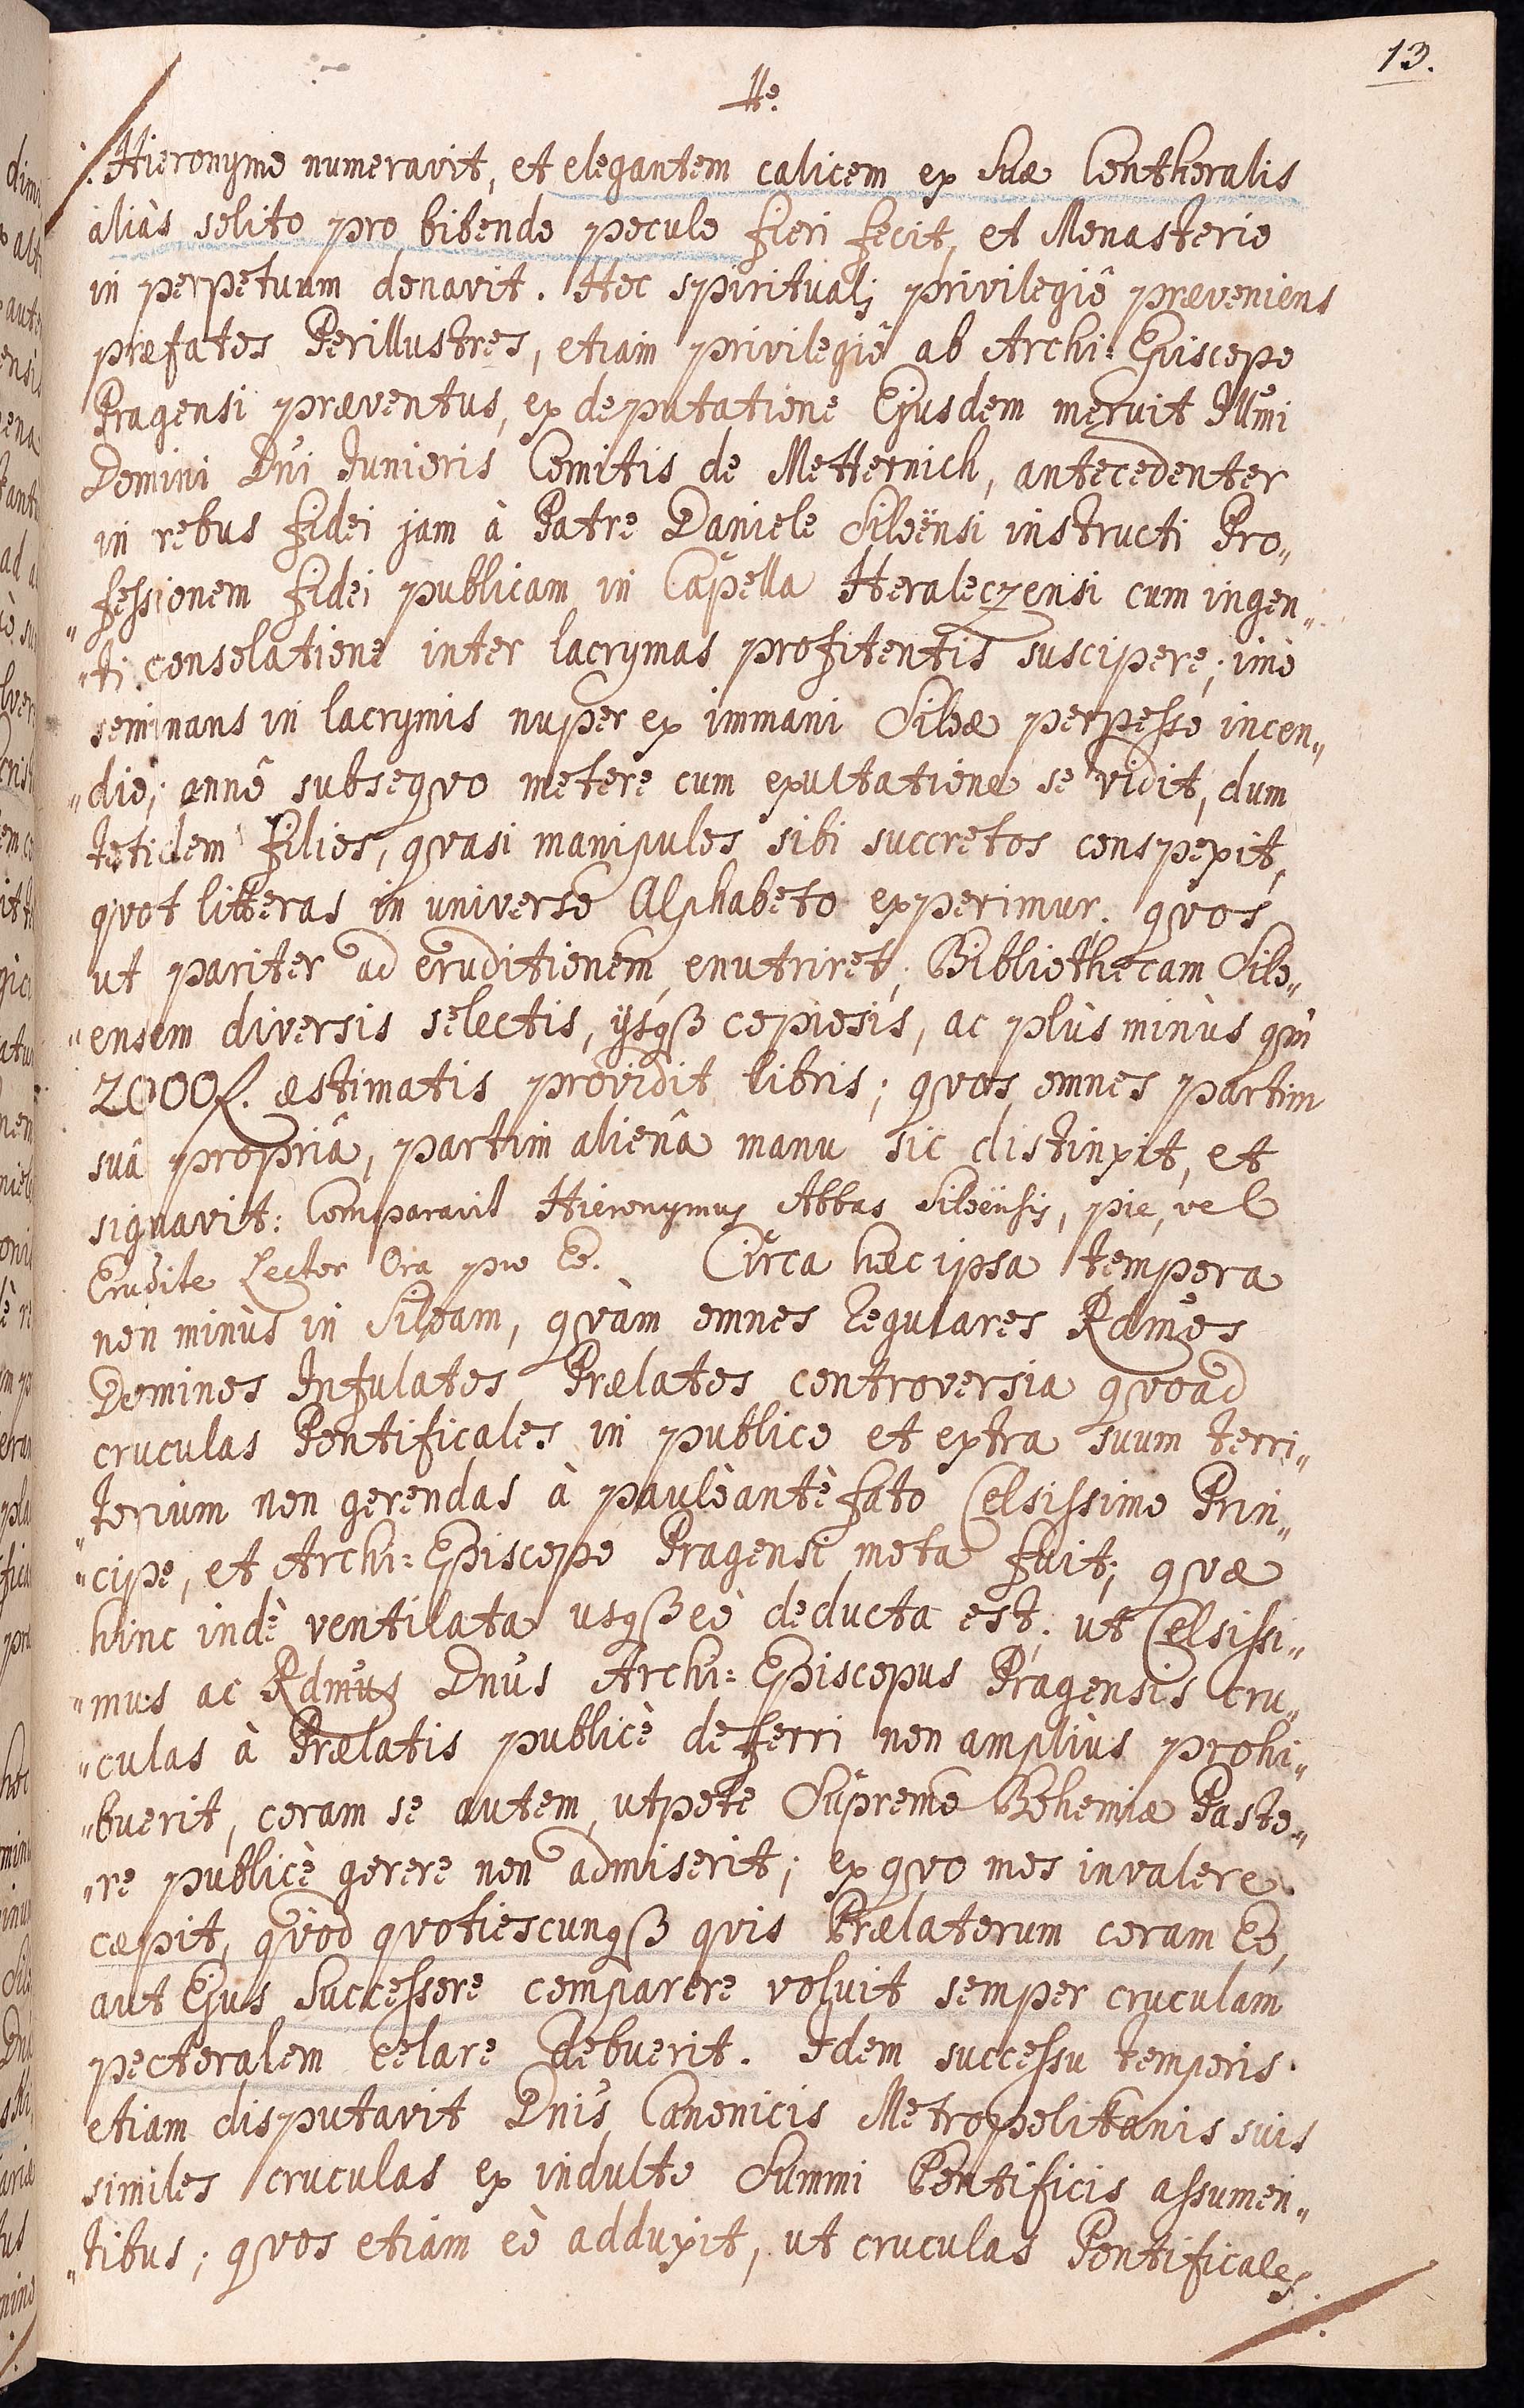 13.
He.
Hieronymo numeravit, et elegantem calicem ex suæ Contheralis
aliàs solito pro bibendo poculo fieri fecit, et Monasterio
in perpetuum donavit. Hoc spirituali privilegiô præveniens
præfatos Perillustres, etiam privilegiô ab Archi: Episcopo
Pragensi præventus, ex deputatione Ejusdem meruit Illmi
Domini Dni Junioris Comitis de Metternich, antecedenter
in rebus fidei jam à Patre Daniele Siloënsi instructi Pro„
„fessionem fidei publicam in Capella Heraleczensi cum ingen„
„ti consolatione inter lacrymas profitentis suscipere; imò
seminans in lacrymis nuper ex immani Siloæ perpesso incen„
„dio; annô subseqvo metere cum exultatione se vidit, dum
totidem filios, qvasi manipulos sibi succretos conspexit,
qvot litteras in universo Alphabeto experimur. qvos
ut pariter ad eruditionem enutriret; Bibliothecam Silo„
„ensem diversis selectis, ijsqß copiosis, ac plùs minùs qm
2000f. æstimatis providit libris; qvos omnes partim
suâ propriâ, partim alienâ manu sic distinxit, et
signavit: Comparavit Hieronymus Abbas Siloënsis, pie, vel
Erudite Lector Ora pro Eo. Circa hæc ipsa tempora
non minùs in Siloam, qvàm omnes regulares Rdmos
Dominos Infulatos Prælatos controversia qvoad
cruculas Pontificales in publico et extra suum terri„
„torium non gerendas à paulòantè fato Celsissimo Prin„
„cipe, et Archi: Episcopo Pragensi mota fuit; qvæ
hinc indè ventilata usqß eò deducta est, ut Celsissi„
„mus ac Rdmus Dnus Archi: Episcopus Pragensis cru„
„culas à Prælatis publicè deferri non ampliùs prohi„
„buerit, coram se autem, utpote Supremo Bohemiæ Pasto„
„re publicè gerere non admiserit; ex qvo mos invalere
cæpit, qvod qvotiescunqß qvis Prælatorum coram Eo,
aut Ejus Successore comparere voluit semper cruculam
pectoralem celare debuerit. Idem successu temporis
etiam disputavit Dnis Canonicis Metropolitanis suis
similes cruculas ex indulto Summi Pontificis assumen„
„tibus; qvos etiam eò adduxit, ut cruculas Pontificales